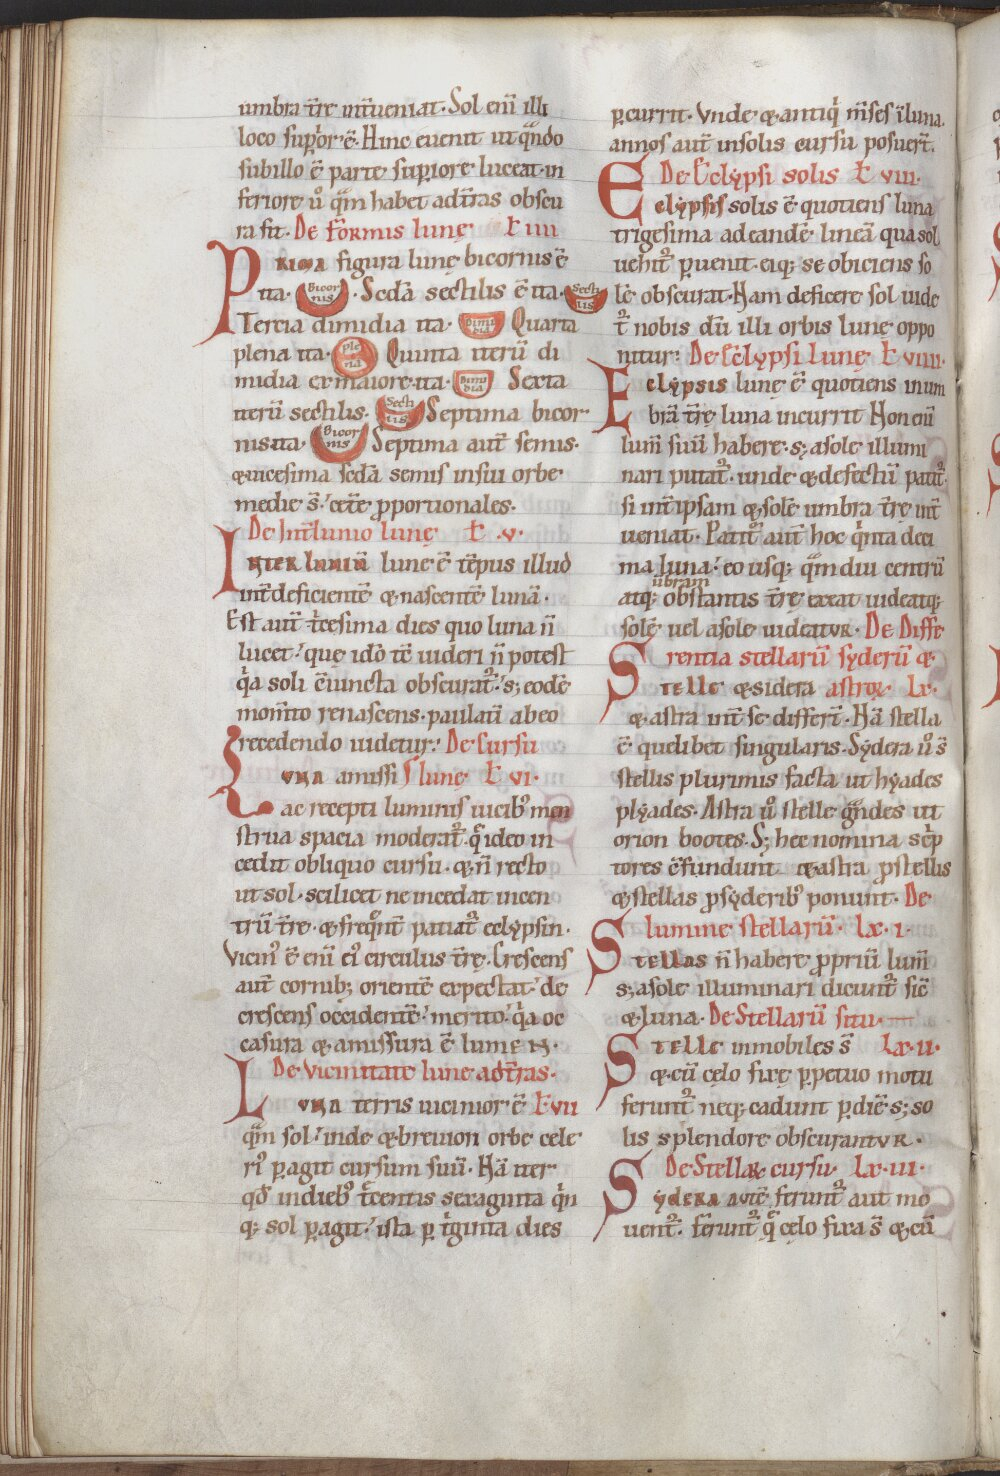 umbra tr̄e int̄ueniat. Sol eni᷆ illi
loco sup̄ior ē. Hinc euenit ut qn̄do
subillo ē parte superiore luceat. in
feriore u͛o qm̄ habet adt̄ras obscu
ra sit. De formis lunę Ł iiii
Prima figura lunę bicornis ē
ita. Bicor nis . Scd̄a sectilis ē ita. Secti lis
Tercia dimidia ita. Dimi dia Quarta
plena ita. Ple na Quinta iterū di
midia ex maiore. ita. Dimi dia Sexta
iterū sectilis. Secti lis Septima bicor
nis. ita. Bicor nis Septima aut̄ semis.
& uicesima scd̄a semis insui orbe
medie s̄. cet̄e proportionales.
De Int̄lunio lunę Ł .v.
Interluniū lune ē tēpus illud
int̄ deficientē & nascentē lunā.
Est aut̄ t͛cesima dies quo luna n̄
lucet. quę idō t̄c uideri n̄ potest
q͛a soli c̄iuncta obscurat͛. s; eodē
mom̄to renascens. paulatī abeo
recedendo uidetur. De Cursu
Luna amissi lunę Ł vi.
ac recepti luminis uicib; men
strua spacia moderat͛. q͛ ideo in
cedit obliquo cursu. & n̄ recto
ut sol. scilicet ne incedat incen
trū tr̄e. & freq͛nt̄ patiat͛ eclypsin.
Vicin͛ ē eni᷆ ei͛ circulus tr̄ę. Crescens
aut̄ cornib; orientē expectat. de
crescens occidentē. merito. q͛a oc
casura & amissura ē lumen.
De vicinitate lune adt̄ras.
Luna terris uicinior ē Ł vii
qm̄ sol. inde & breuiori orbe cele
ri͛ peragit cursum suū. Nā iter
qd̄ indieb; t͛centis sexaginta q͛n
q; sol peragit. ista p t͛ginta dies
pcurrit. Vnde & antiq͛ m̄ses ī luna.
annos aut̄ insolis cursu posuer̄t.
De Eclypsi solis Ł viii.
Eclypsis solis ē quotiens luna
trigesima adeandē lineā qua sol
uehit͛ puenit. eiq; se obiciens so
lē obscurat. Nam deficere sol uide
t͛ nobis dū illi orbis lunę oppo
nitur. De Eclypsi Lunę Ł viiii.
Eclypsis lunę ē quotiens inum
brā tr̄ę luna incurrit Non eni᷆
lum̄ suū habere. s; asole illumi
nari putat͛. unde & defectū patit͛.
si int̄ ipsam & solē umbra tr̄ę int̄
ueniat. Patit͛ aut̄ hoc q͛nta deci
ma luna. eo usq; qm̄diu centrū
ūbram
atq; obstantis tr̄ę exeat uideatq;
solē uel asole uideatur. De Diffe
rentia stellarū syderū &
Stelle & sidera astroꝝ. Lx.
& astra int̄ se differt̄. Nā stella
ē quelibet singularis. Sydera u͛o s̄
stellis plurimis facta ut hyades
plyades. Astra u͛o stelle gn̄des ut
orion bootes. S; hec nomina sc͛p
tores c̄fundunt & astra pstellis
& stellas psyderib; ponunt. De
lumine stellarū. Lx.i.
Stellas n̄ habere propriū lum̄
s; asole illuminari dicunt͛ sic̄
& luna. De Stellarū situ.
Stelle inmobiles s̄ Lx.ii.
& cū cęlo fixę ppetuo motu
ferunt͛ neq; cadunt pdiē. s; so
lis splendore obscurantur.
De Stellaꝝ cursu. Lx.iii.
Sydera autē ferunt͛ aut mo
uent͛. ferunt͛ q͛ celo fixa s̄ & cū